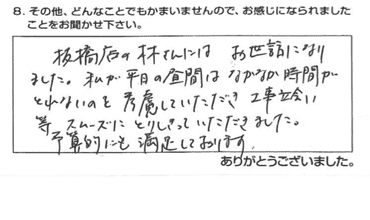 8. その他、どんなことでもかまいませんので、お感じになられました
ことをお聞かせ下さい。
板橋店の林さんには お世話になり
ました。私が平日の昼間は なかなか時間が
とれないのを考慮していただき 工事立会い
等 スムーズに とりしきっていただきました。
予算的にも 満足しております。
ありがとうございました。